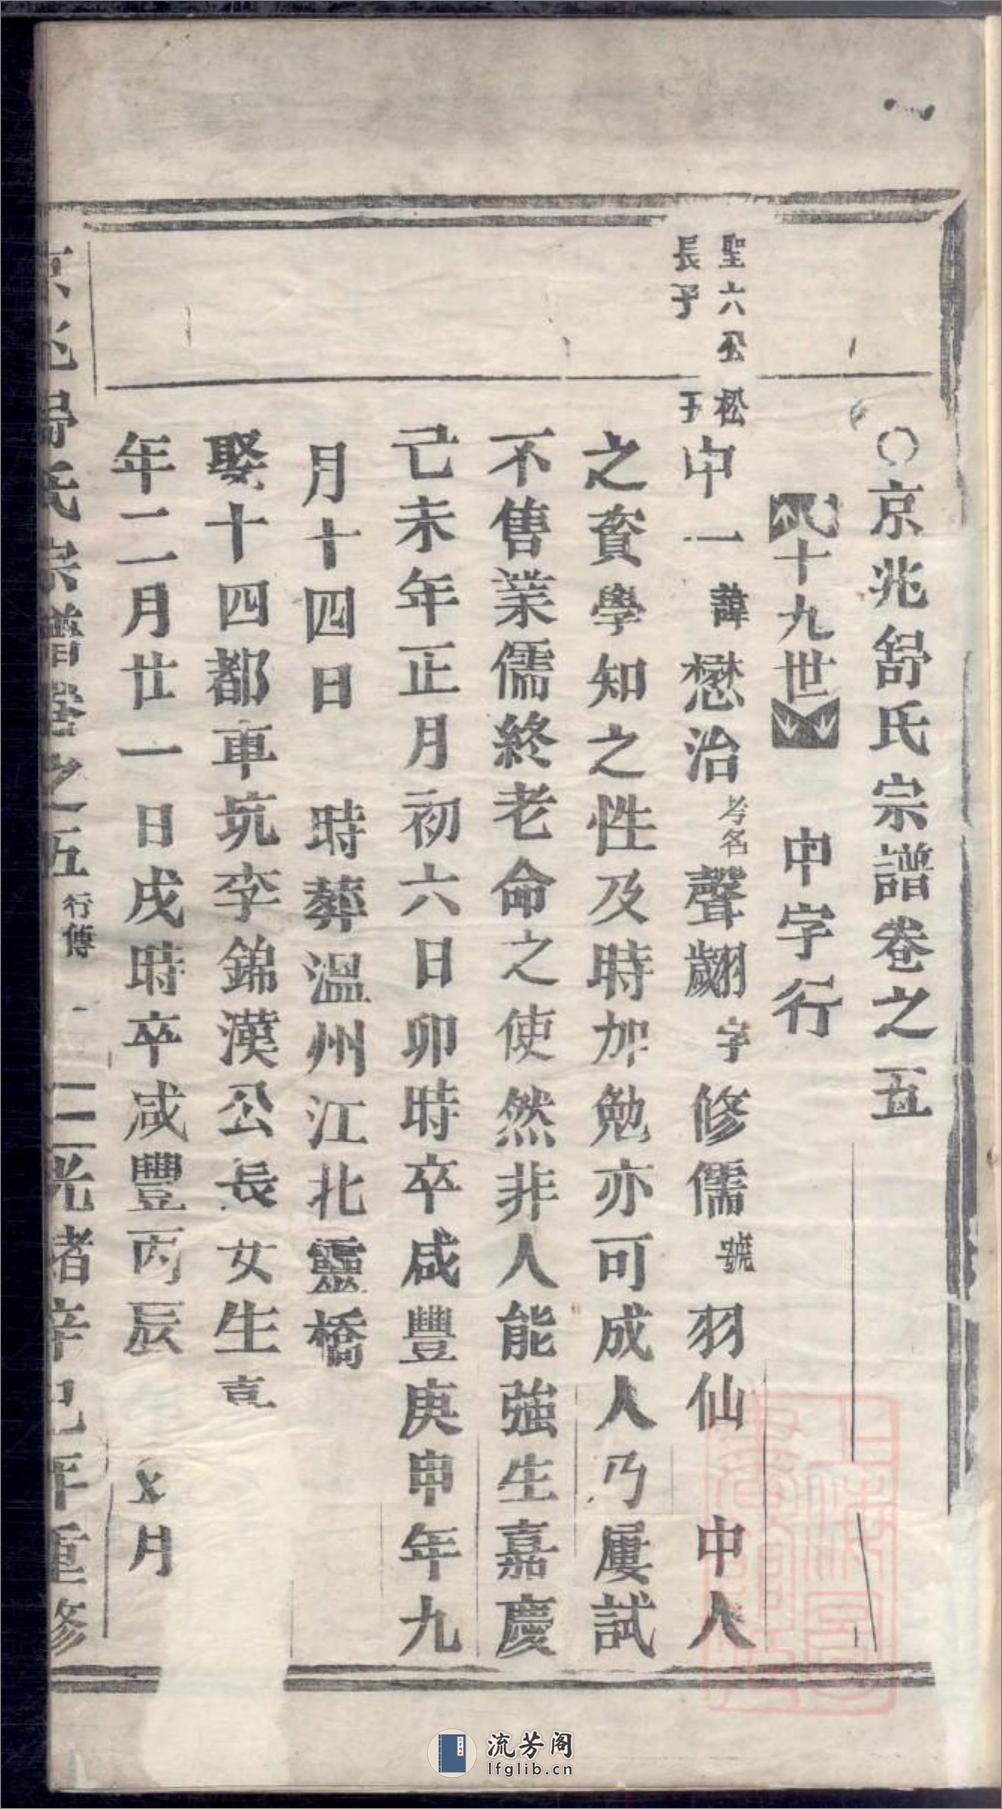 ○京兆舒氏宗譜卷之五
十九世 中字行
聖六公松
長子 玉
中一諱懋治考名聲翽字修儒號羽仙 中人
之資學知之性及時加勉亦可成人乃屢試
不售業儒終老命之使然非人能強生嘉慶
己未年正月初六日卯時卒咸豐庚申年九
月十四日 時葬溫州江北靈橋
娶十四都車坑李錦漢公長女生嘉
年二月廿一日戌時卒咸豐丙辰 月
京兆舒氏宗譜卷之五 行傳 一 光緒辛巳年重修
流芳阁
lfglib.cn